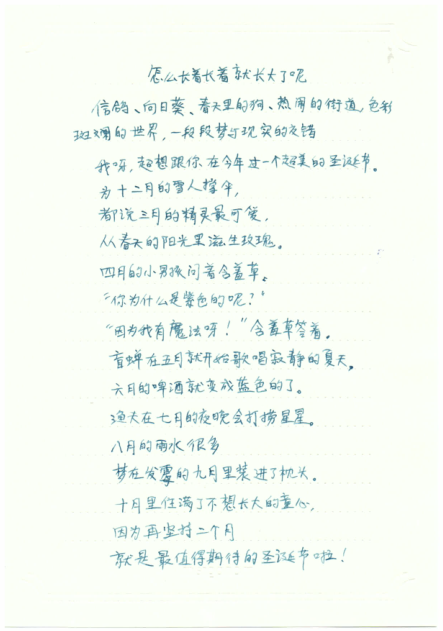 怎么长着长着就长大了呢
信鸽、向日葵、春天里的狗、热闹的街道,色彩
斑斓的世界,一段段梦与现实的交错
我呀,超想跟你在今年过一个超美的圣诞节。
为十二月的雪人撑伞,
都说三月的精灵最可爱,
从春天的阳光里滋生玫瑰。
四月的小男孩问着含羞草。
“你为什么是紫色的呢?”
“因为我有魔法呀!”含羞草答着。
盲蝉在五月就开始歌唱寂静的夏天。
六月的啤酒就变成蓝色的了。
渔夫在七月的夜晚会打捞星星。
八月的雨水很多
梦在发霉的九月里装进了枕头。
十月里住满了不想长大的童心,
因为再坚持二个月
就是最值得期待的圣诞节啦!